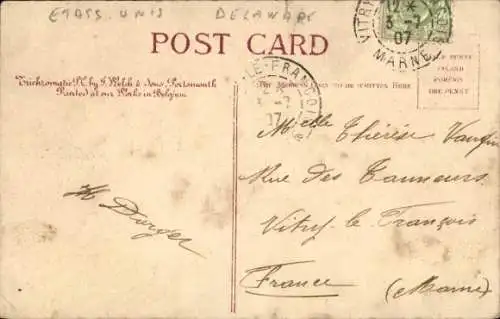 ETATS. UNIS DELAWARE
POST CARD
Trichromatic P.C. by J. Welch & Sons, Portsmouth
Printed at our Works in Belgium
The Address only to be written Here
INLAND
FOREIGN
ONE PENNY
VITRY
12 *
3 -7
07
MARNE
LE-FRANÇOIS
3 -7
07
Melle Thérèse
Rue des Tanneurs
Vitry le François
France (Marne)
H Dorget